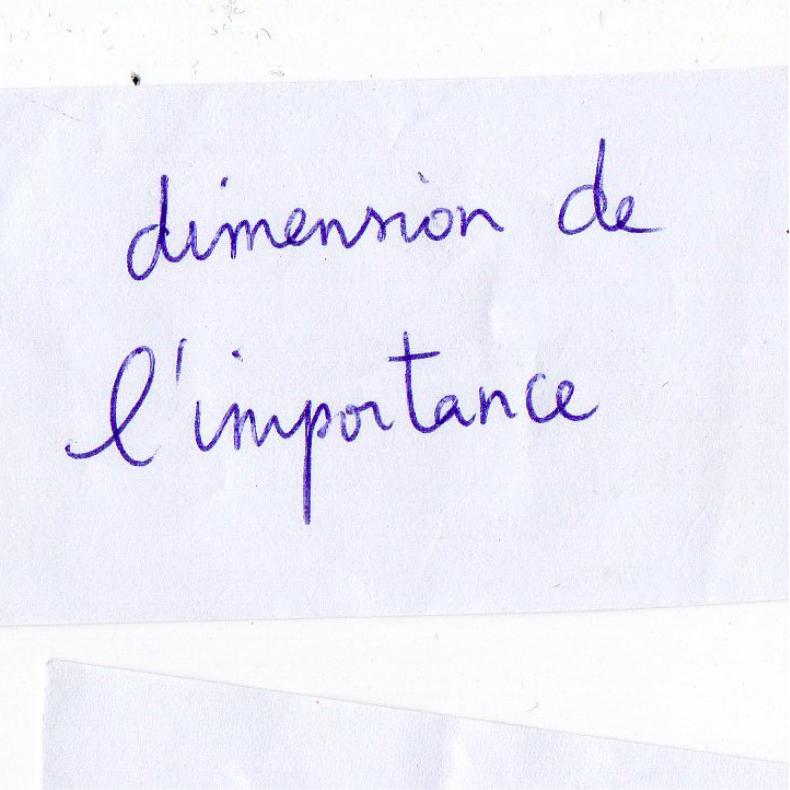 dimension de
l'importance